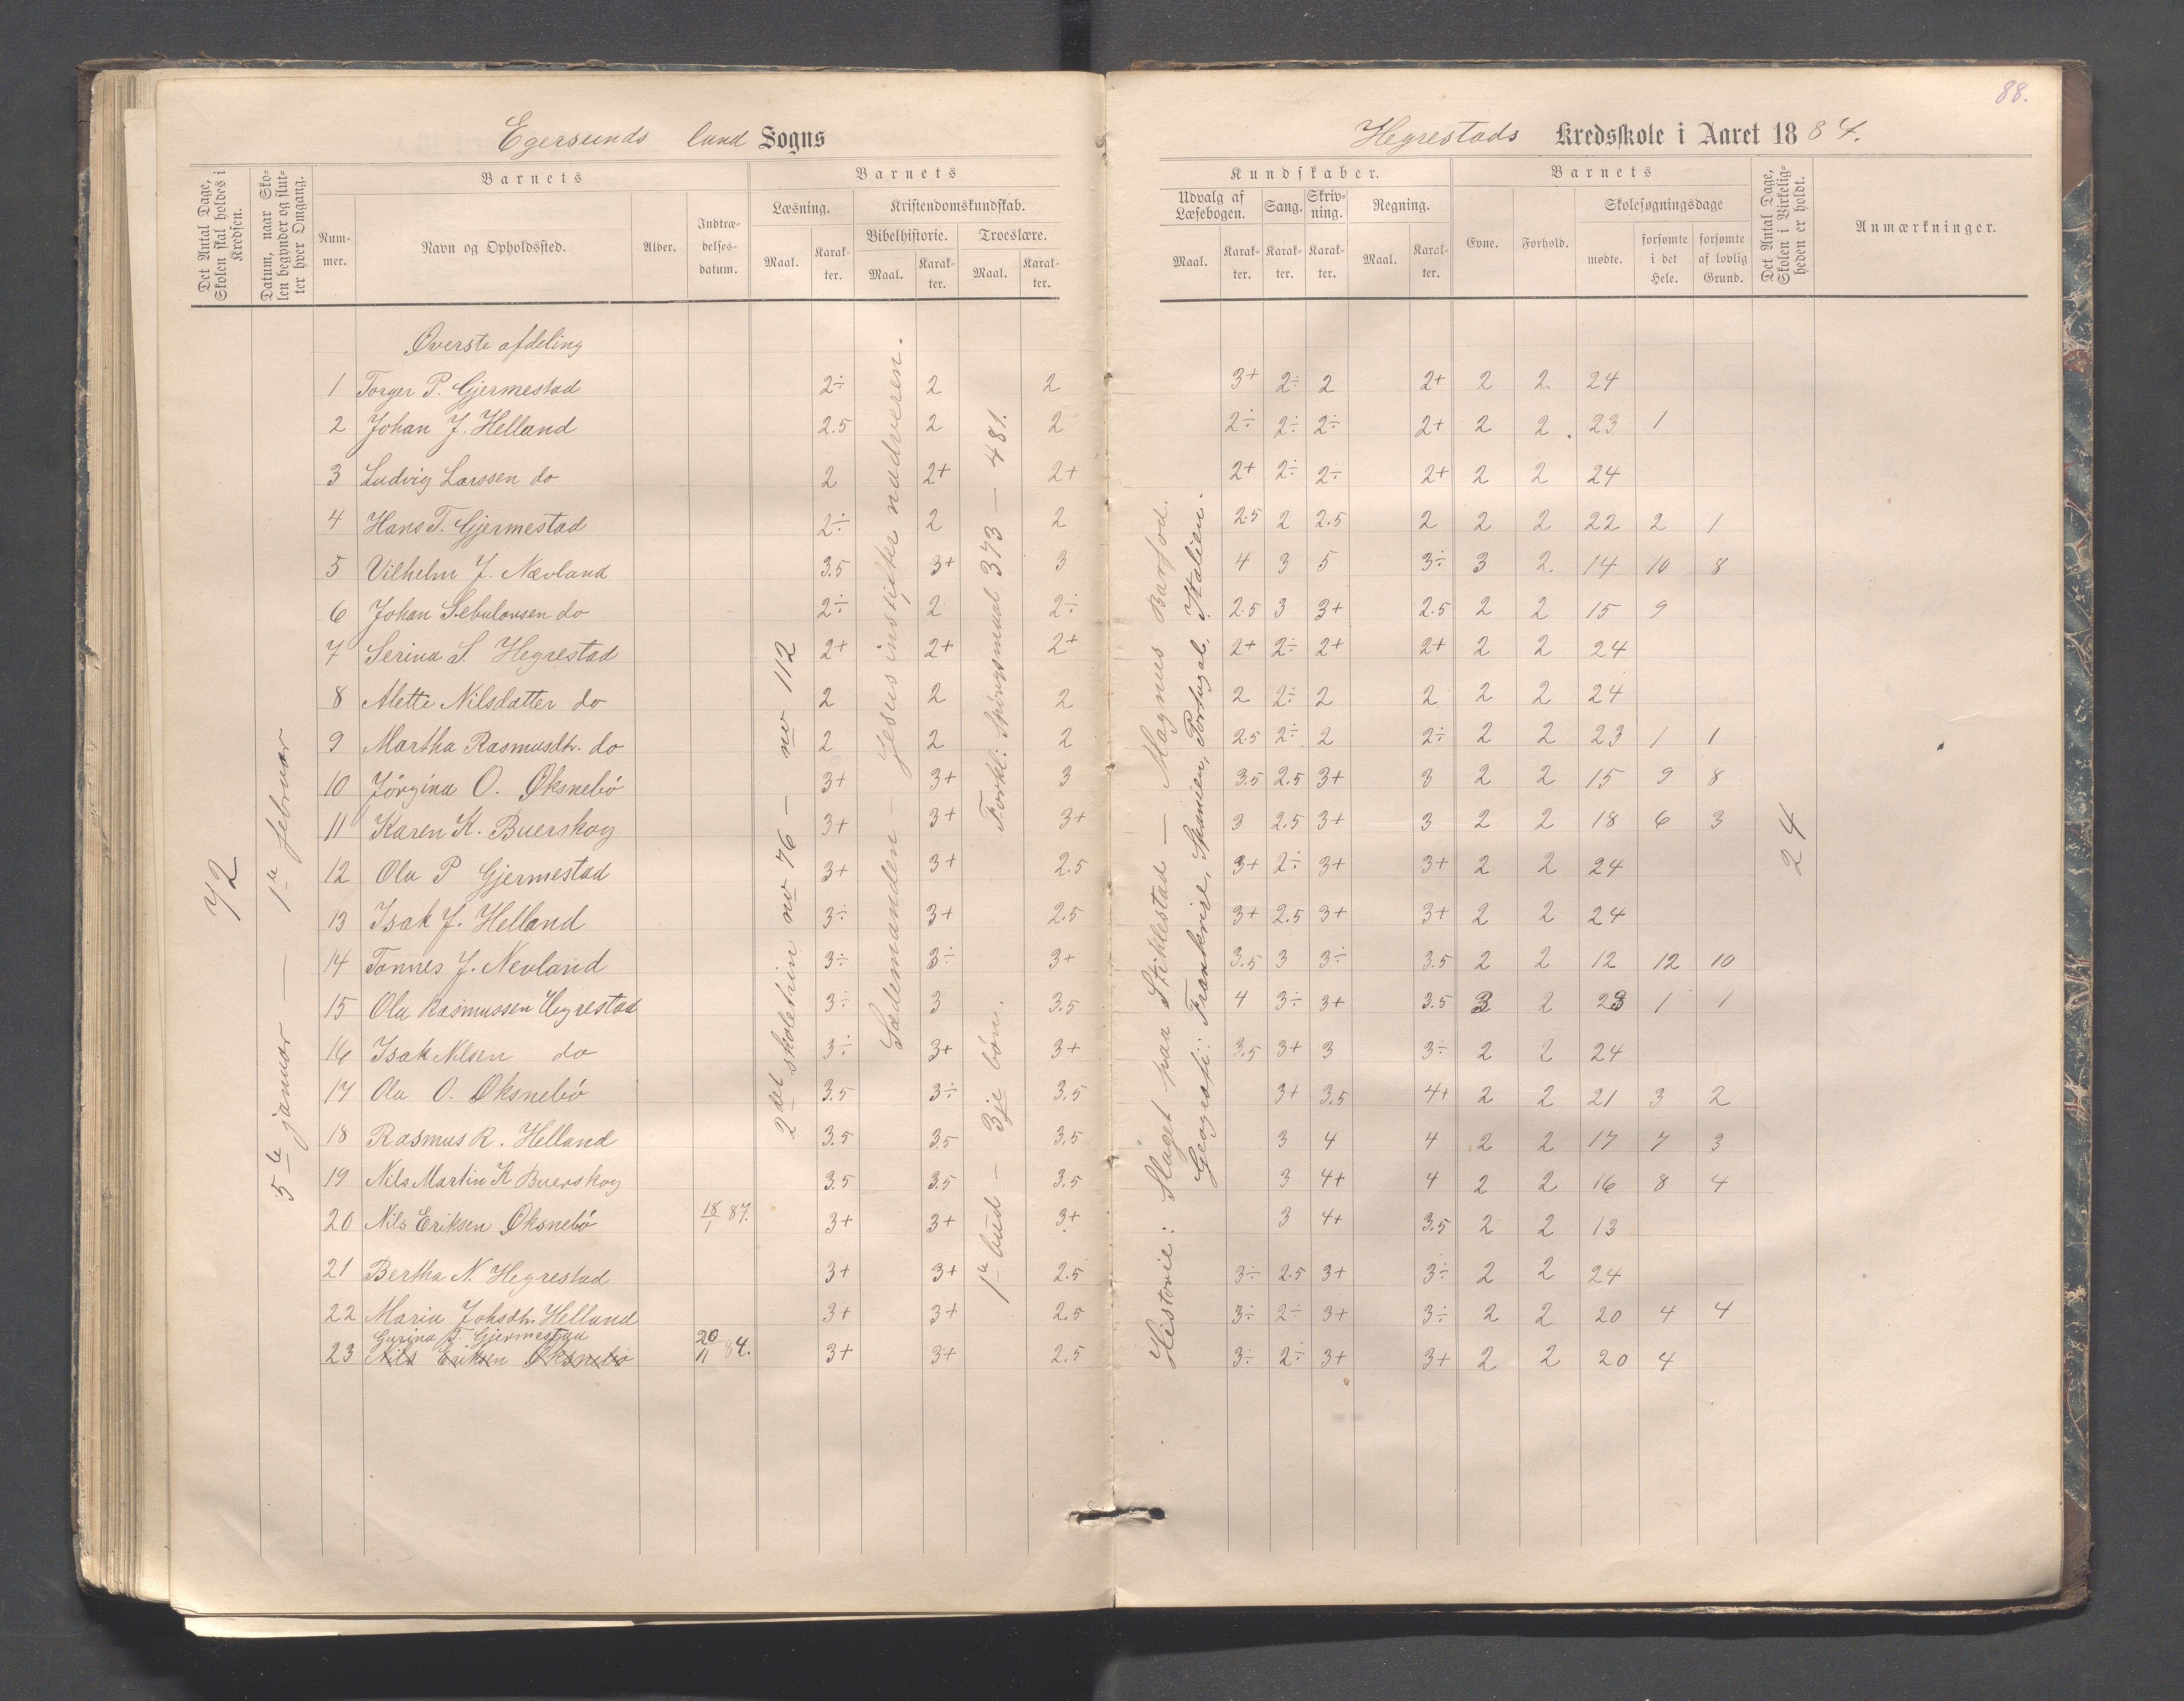 88.
Egersunds land Sogns
Hegrestads Kredsskole i Aaret 1884.
Det Antal Dage, Skolen skal holdes i Kredsen.
Datum, naar Skolen begynder og slutter hver Omgang.
Barnets
Nummer.
Navn og Opholdssted.
Alder.
Indtrædelsesdatum.
Barnets
Læsning.
Maal.
Karakter.
Kristendomskundskab.
Bibelhistorie.
Maal.
Karakter.
Troeslære.
Maal.
Karakter.
Kundskaber.
Udvalg af Læsebogen.
Maal.
Karakter.
Sang.
Karakter.
Skrivning.
Karakter.
Regning.
Maal.
Karakter.
Barnets
Evne.
Forhold.
Skolesøgningsdage
mødte.
forsømte i det Hele.
forsømte af lovlig Grund.
Det Antal Dage, Skolen i Virkeligheden er holdt.
Anmærkninger.
Øverste afdeling
1 Torger P. Gjermestad 2÷ 2 2 3+ 2÷ 2 2+ 2 2 24
2 Johan J. Helland 2.5 2 2 2÷ 2÷ 2÷ 2+ 2 2 23 1
3 Ludvig Larssen do 2 2+ 2+ 2+ 2÷ 2÷ 2+ 2 2 24
4 Hans T. Gjermestad 2÷ 2 2 2.5 2 2.5 2 2 2 22 2 1
5 Vilhelm J. Nævland 3.5 3+ 3 4 3 5 3÷ 3 2 14 10 8
6 Johan Sebulonsen do 2÷ 2 2÷ 2.5 3 3+ 2.5 2 2 15 9
7 Serina S. Hegrestad 2+ 2+ 2+ 2+ 2÷ 2+ 2+ 2 2 24
8 Alette Nilsdatter do 2 2 2 2 2÷ 2 2 2 2 24
9 Martha Rasmusdtr. do 2 2 2 2.5 2÷ 2 2÷ 2 2 23 1 1
10 Jörgina O. Øksnebö 3+ 3+ 3 3.5 2.5 3+ 3 2 2 15 9 8
11 Karen K. Buerskog 3+ 3+ 3+ 3 2.5 3+ 3 2 2 18 6 3
12 Ola P Gjermestad 3+ 3+ 2.5 3+ 2÷ 3+ 3+ 2 2 24
13 Isak J. Helland 3÷ 3+ 2.5 3+ 2.5 3+ 3+ 2 2 24
14 Tonnes J. Nevland 3÷ 3÷ 3+ 3.5 3 3÷ 3.5 2 2 12 12 10
15 Ola Rasmussen Hegrestad 3÷ 3 3.5 4 3÷ 3+ 3.5 3 2 23 1 1
16 Isak Nilsen do 3÷ 3+ 3+ 3.5 3+ 3 3÷ 2 2 24
17 Ola O. Øksnebö 3.5 3÷ 3.5 3+ 3.5 4+ 2 2 21 3 2
18 Rasmus R. Helland 3.5 3.5 3.5 3 4 4 2 2 17 7 3
19 Nils Martin K Buerskog 3.5 3.5 3.5 3 4+ 4 2 2 16 8 4
20 Nils Eriksen Øksnebö 18/1 87. 3+ 3+ 3+ 3 4+ 3.5 2 2 13
21 Bertha N. Hegrestad 3+ 3+ 2.5 3÷ 2.5 3+ 3÷ 2 2 24
22 Maria Johsdtr. Helland 3+ 3+ 2.5 3÷ 2÷ 3+ 3÷ 2 2 20 4 4
Gurina T. Gjermestad
23 Nils Eriksen Øksnebö 20/11 84. 3+ 3+ 2.5 3÷ 2÷ 3+ 3+ 2 2 20 4
72
5te januar — 1te februar
2det skoletrin no 76 — no 112
Sædemanden — Jesus instifter nadveren.
1te bud — 3je bön.
Forkl: Spörgsmaal 373 — 481.
Historie: Slaget paa Stiklestad — Magnus Barfod.
Geografi: Frankrige, Spanien, Portugal, Italien.
24